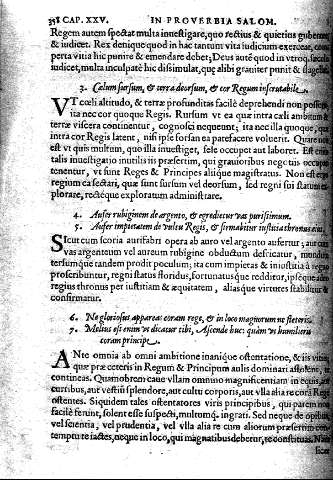 358 CAP. XXV. IN PROVERBIA SALOM.
Regem autem spectat multa inuestigare, quo rectius & quietius gubernet
& iudicet. Rex denique quod in hac tantum vita iudicium exerceat, com
perta vitia hic punire & emendare debet; Deus autē quod in vtroq; sæculo
iudicet, multa inculpatè hic dissimulat, quę alibi grauiter punit & flagellat
3. Cœlum sursum, & terra deorsum, & cor Regum inscrutabile.
VT cœli altitudo, & terræ profunditas facilè deprehendi non possunt,
ita nec cor quoque Regis. Rursum vt ea quæ intra cæli ambitum &
terræ viscera continentur, cognosci nequeunt; ita nec illa quoque, quæ
intra cor Regis latent, nisi ipse forsan ea patefacere voluerit. Quare non
est vt quis multum, quo illa inuestiget, sese occupet aut laboret. Est enim
talis inuestigatio inutilis iis præsertim, qui grauioribus negotiis occupati
tenentur, vt sunt Reges & Principes aliique magistratus. Non est ergo
regium ea sectari, quæ sunt sursum vel deorsum, sed regni sui statum ex
plorare, rectéque exploratum administrare.
4. Aufer rubiginem de argento, & egredietur vas purissimum.
5. Aufer impietatem de vultu Regis, & firmabitur iustitia thronus eius.
SIcut cum scoria aurifabri opera ab auro vel argento aufertur; aut cum
vas argenteum vel aureum rubigine obductum defricatur, mundum
tersumque tandem prodit poculum; ita cum impietas & iniustitia à regno
proscribuntur, regni status floridus, fortunatusque redditur, ipseque adeo
regius thronus per iustitiam & æquitatem, aliasque virtutes stabilitur &
confirmatur.
6. Ne gloriosus appareas coram rege, & in loco magnorum ne steteris.
7. Melius est enim vt dicatur tibi, Ascende huc: quàm vt humilieris
coram principe.
ANte omnia ab omni ambitione inanique ostentatione, & iis vitiis,
quæ præ ceteris in Regum & Principum aulis dominari assolent, te
contineas. Quamobrem caue vllam omnino magnificentiam in equis, aut
curribus, aut vestiū splendore, aut cultu corporis, aut vlla alia re corā Rege
ostentes. Siquidem tales ostentatores viris principibus, qui parem non
facilè ferunt, solent esse suspecti, multumq. ingrati. Sed neque de opibus,
vel scientia, vel prudentia, vel vlla alia re cum aliorum præsertim con
temptu te iactes, neque in loco, qui magnatibus debetur, te constituas. Nam